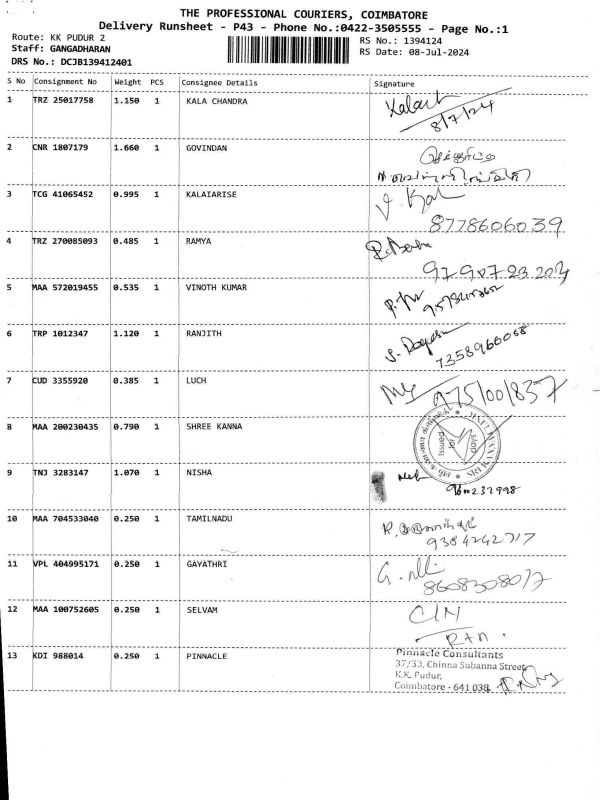 THE PROFESSIONAL COURIERS, COIMBATORE
Delivery Runsheet - P43 - Phone No.:0422-3505555 - Page No.:1
Route: KK PUDUR 2
RS No.: 1394124
Staff: GANGADHARAN
RS Date: 08-Jul-2024
DRS No.: DCJB139412401
S No Consignment No Weight PCS Consignee Details Signature
1 TRZ 25017758 1.150 1 KALA CHANDRA
8/7/24
2 CNR 1807179 1.660 1 GOVINDAN
3 TCG 41065452 0.995 1 KALAIARISE
8778606039
4 TRZ 270085093 0.485 1 RAMYA
5 MAA 572019455 0.535 1 VINOTH KUMAR
6 TRP 1012347 1.120 1 RANJITH
7358966068
7 CUD 3355920 0.385 1 LUCH
8 MAA 200230435 0.790 1 SHREE KANNA
Issued for days
9 TNJ 3283147 1.070 1 NISHA
9600237998
10 MAA 704533040 0.250 1 TAMILNADU
9384242717
11 VPL 404995171 0.250 1 GAYATHRI
12 MAA 100752605 0.250 1 SELVAM
13 KDI 988014 0.250 1 PINNACLE
Pinnacle Consultants
37/33, Chinna Subanna Street,
K.K. Pudur,
Coimbatore - 641 038.